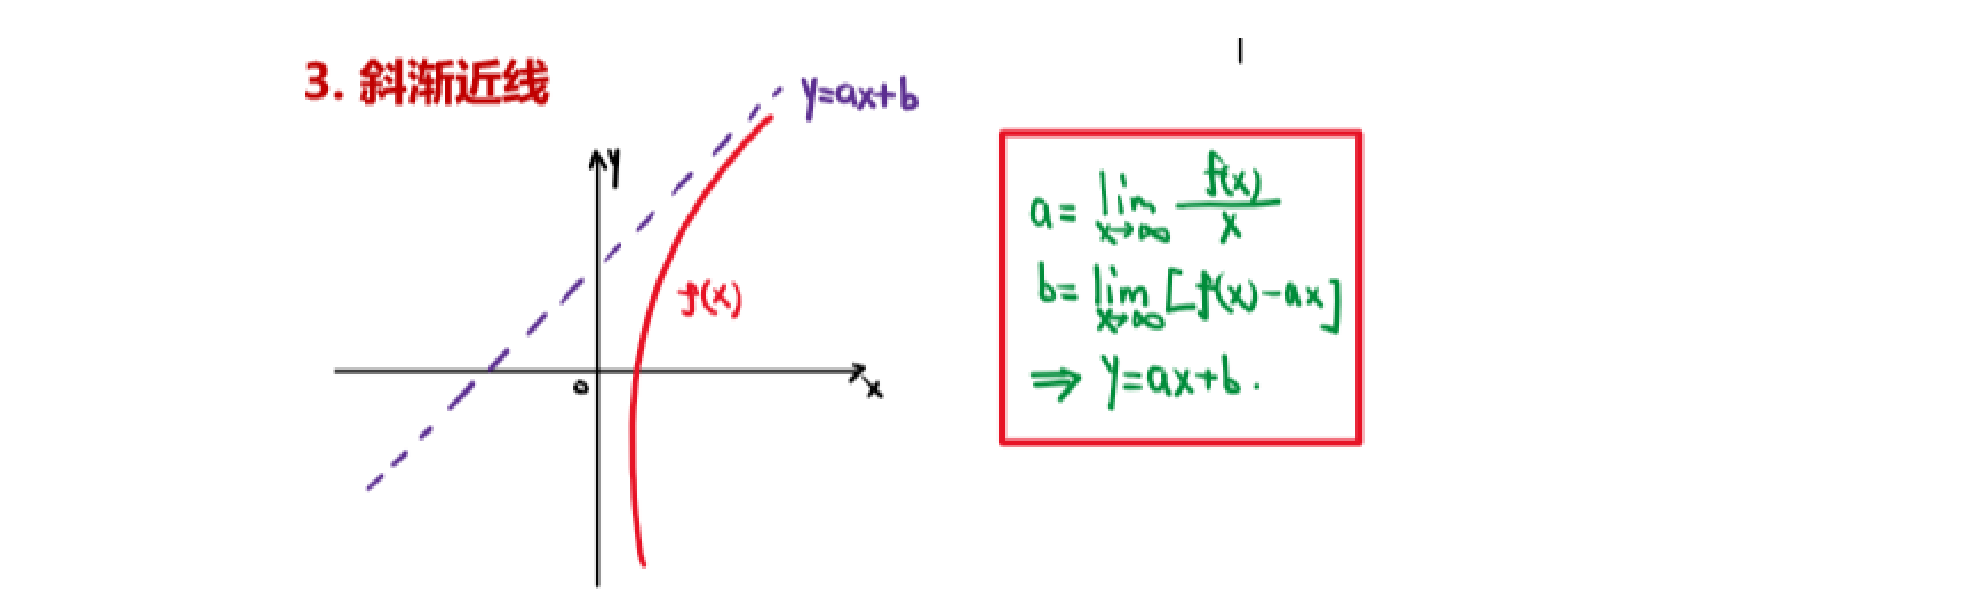 3. 斜渐近线
y=ax+b
y
f(x)
0
x
a= lim x→∞ f(x)/x
b= lim x→∞ [f(x)-ax]
⇒ y=ax+b.